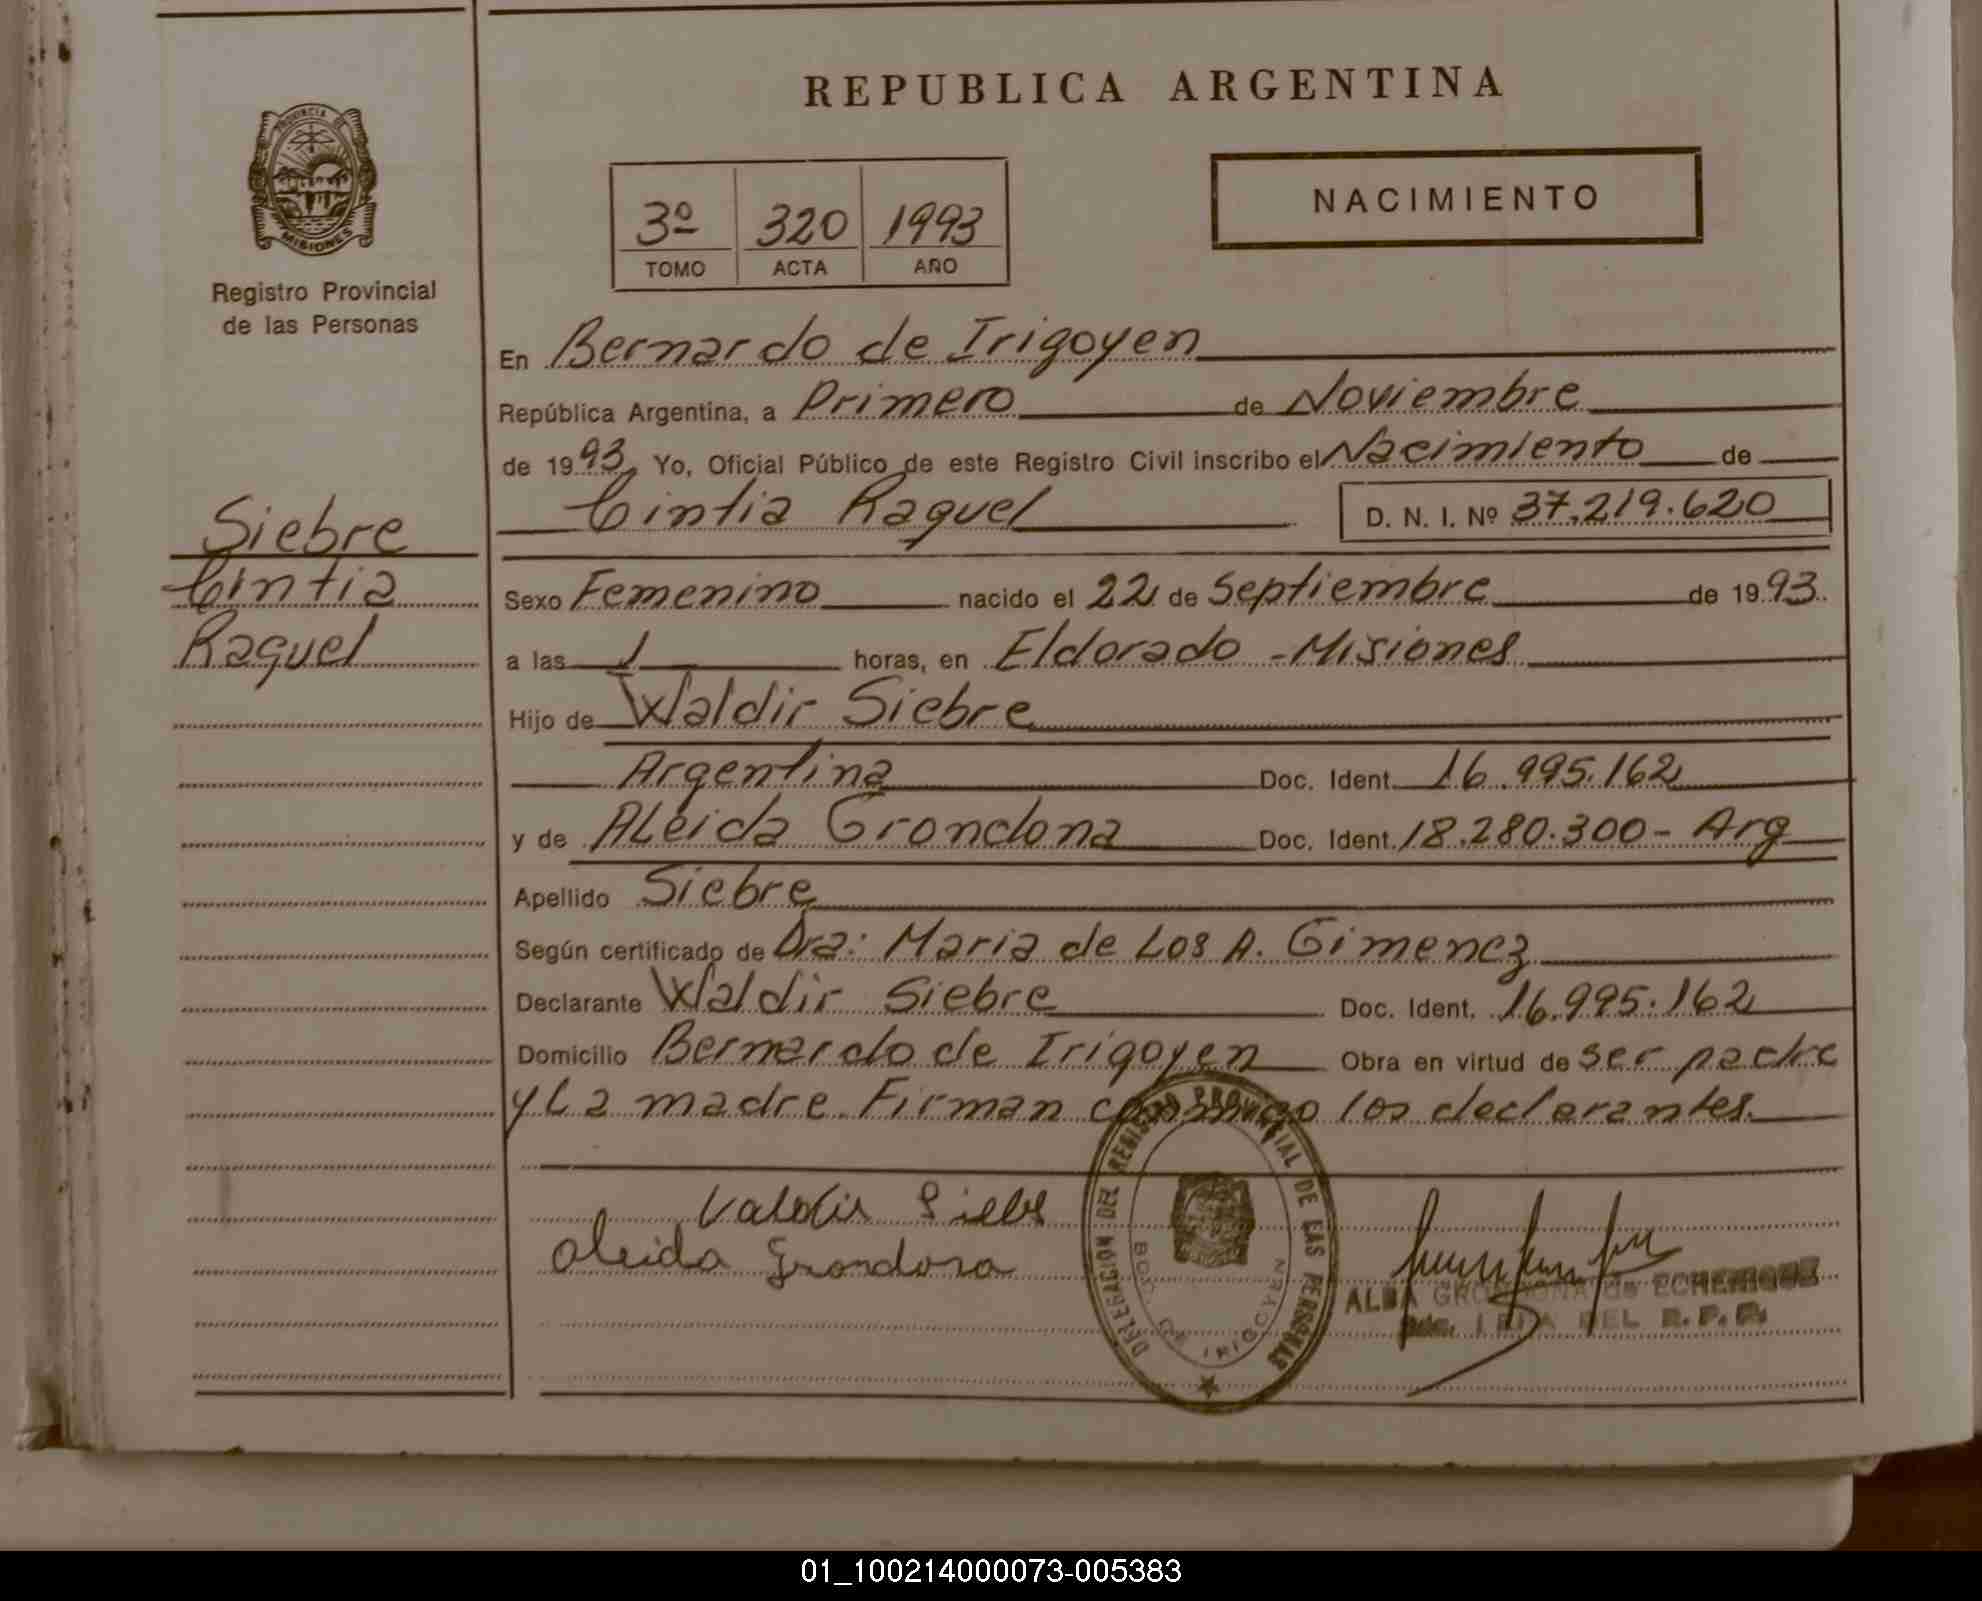 REPUBLICA ARGENTINA
PROVINCIA DE
MISIONES
Registro Provincial
de las Personas
3º 320 1993
TOMO ACTA AÑO
NACIMIENTO
En Bernardo de Irigoyen
República Argentina, a Primero de Noviembre
de 1993, Yo, Oficial Público de este Registro Civil inscribo el Nacimiento de
Cintia Raquel D. N. I. Nº 37.219.620
Siebre
Cintia
Raquel
Sexo Femenino nacido el 22 de Septiembre de 1993.
a las 1 horas, en Eldorado - Misiones
Hijo de Waldir Siebre
Argentina Doc. Ident. 16.995.162
y de ALeida Grondona Doc. Ident. 18.280.300 - Arg
Apellido Siebre
Según certificado de Dra: Maria de Los A. Gimenez
Declarante Waldir Siebre Doc. Ident. 16.995.162
Domicilio Bernardo de Irigoyen Obra en virtud de ser padre
y La madre. Firman conmigo los declarantes.
Aleida Grondona
DELEGACION DEL REGISTRO PROVINCIAL DE LAS PERSONAS
BDO. DE IRIGOYEN
ALBA GRONDONA de ECHENIQUE
DEL R. P. P.
01_100214000073-005383